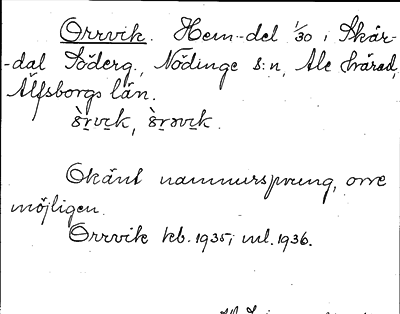 Orrvik. Hem-del 1/30 i Skår-
-dal Söderg., Nödinge s:n, Ale härad,
Älfsborgs län.
Okänt namnursprung, orre
möjligen.
Orrvik kb. 1935; ml. 1936.